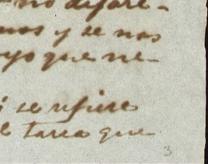 no difere-
mos y se nos
oyo que ne-
se refiere
tarea que
3